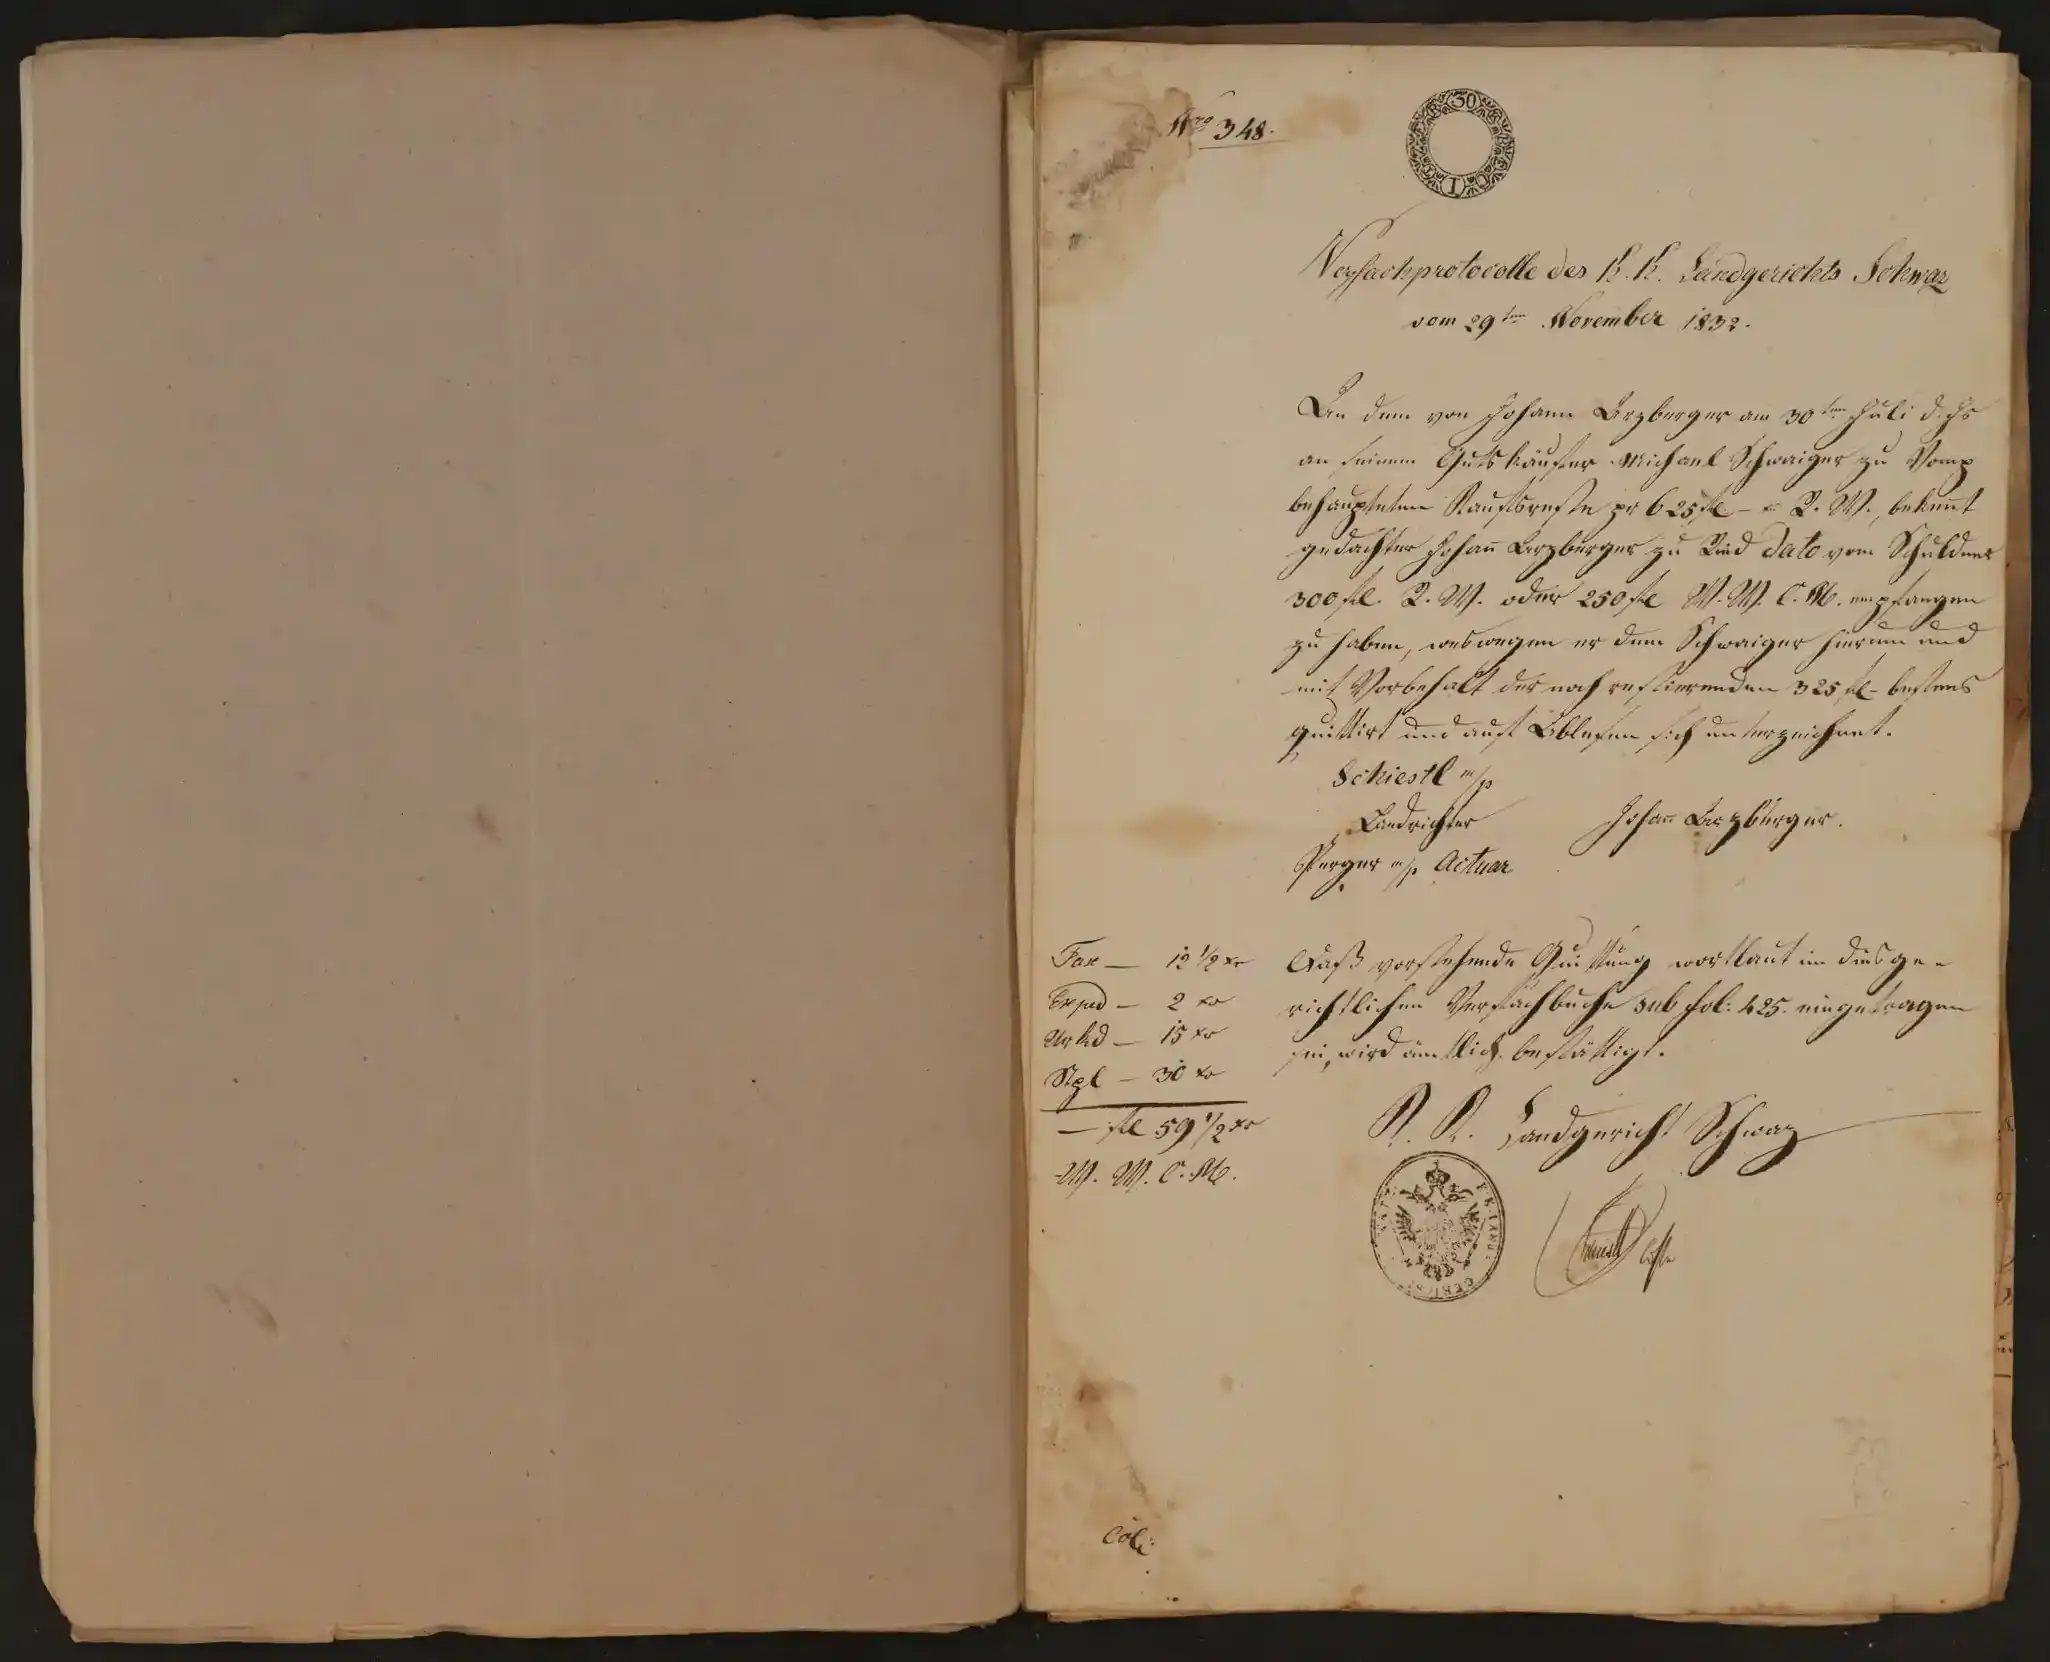 Nro 348.
30
Verfachprotocolle des K. K. Landgerichts Schwaz
vom 29ten November 1832.
An dem von Johann Arzberger am 30ten Juli d. Js
an seinem Gutskäufer Michael Schwaiger zu Vomp
behaupteten Kaufsreste pr 625 fl – x R. W., bekennt
gedachter Johan̄ Arzberger zu Ried dato vom Schuldner
300 fl. R. W. oder 250 fl W. W. C. M. empfangen
zu haben, weswegen er dem Schwaiger hierum und
mit Vorbehalt der noch restierenden 325 fl – bestens
quittirt und auf Ablesen sich unterzeichnet.
Schiestl m/p
Landrichter
Johan̄ Arzberger.
Perger m/p Actuar
Tax — 12 1/2 xr
Exped — 2 xr
Urkd — 15 xr
Stpl — 30 xr
— fl 59 1/2 xr
W. W. C. M.
Daß vorstehende Quittung wortlaut im diesge-
richtlichen Verfachbuche sub fol: 425. eingetragen
sei, wird ämtlich bestättigt.
K. K. Landgericht Schwaz
K. K. LAND
GERICHT
Schiestl
Coll: